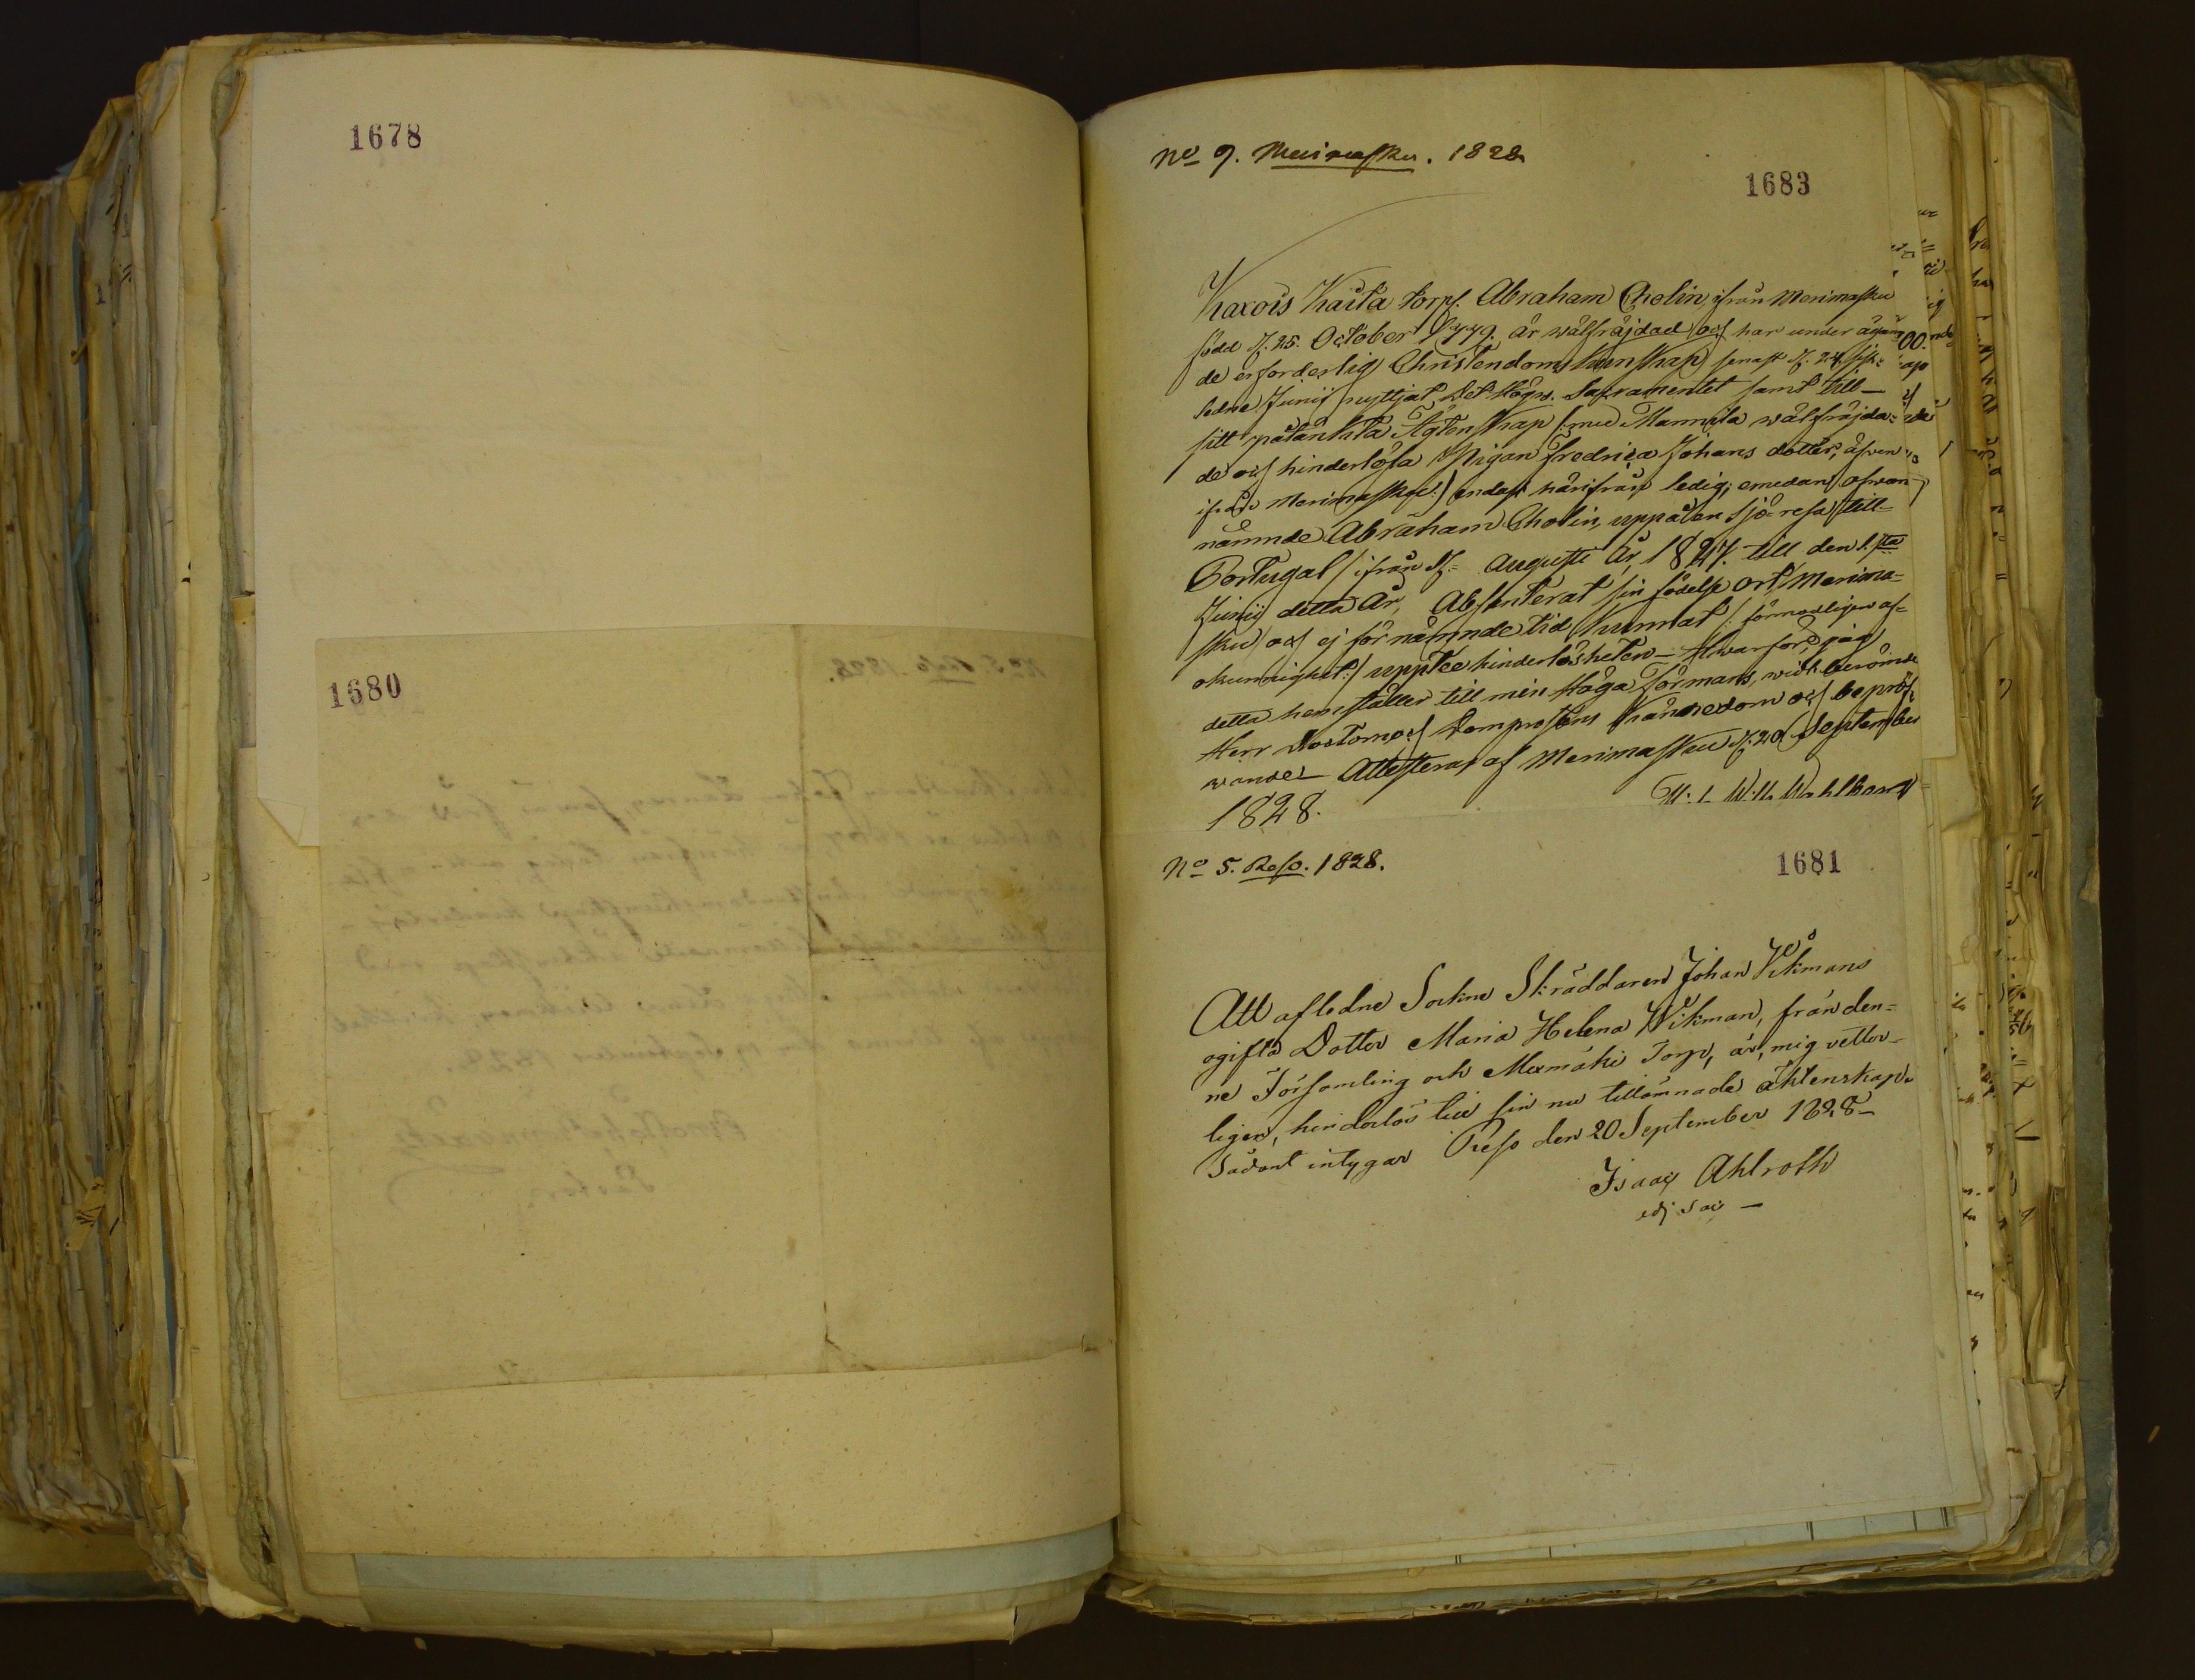 1678
1680
No 9. Merimasku. 1828
1683
Karois Kaita torp. Abraham Cholin, ifrån Merimasku
född d. 25. October är wälfräjdad och har under ägan-
de erforderlig Christendoms kunskap senast d. 24 sist-
ledne Junij nyttjat Det Högw. Sacramentet samt till
sitt påtänkta Ägtenskap /: med Mannila wälfräjda-
de och hinderlösa Pigan Fredrica Johans dotter, äfwen
ifrån Merimasku :/ endast härifrån ledig; emedan ofwan-
nämnde Abraham Cholin, uppå en sjö-resa till
Portugal ifrån d. Augusti År 1827. till den 1.sta
Junij detta År, Absenterat sin födelse ort Merima-
sku och ej för nämnde tid kunnat /: förmodligen af
okunnighet :/ upptée hinderlösheten – Hwarföre jag
detta hemställer till min Höga Förmans, widtberömde
Herr Doctorn och Domprostens kännedom och bepröf-
wande – Attesteras af Merimasku d. 20 September
1828. Wahlberg
No 5. Reso. 1828.
1681
Att afledne Sockne Skräddaren Johan Wikmans
ogifta Dotter Maria Helena Wikman, från den-
ne Församling och Mexmäki Torp, är, mig vetter-
ligen, hinderlös till sin nu tillämnade äktenskap.
Sådant intygar Reso den 20 September 1828 –
Isaac Ahlroth
adj Sac –